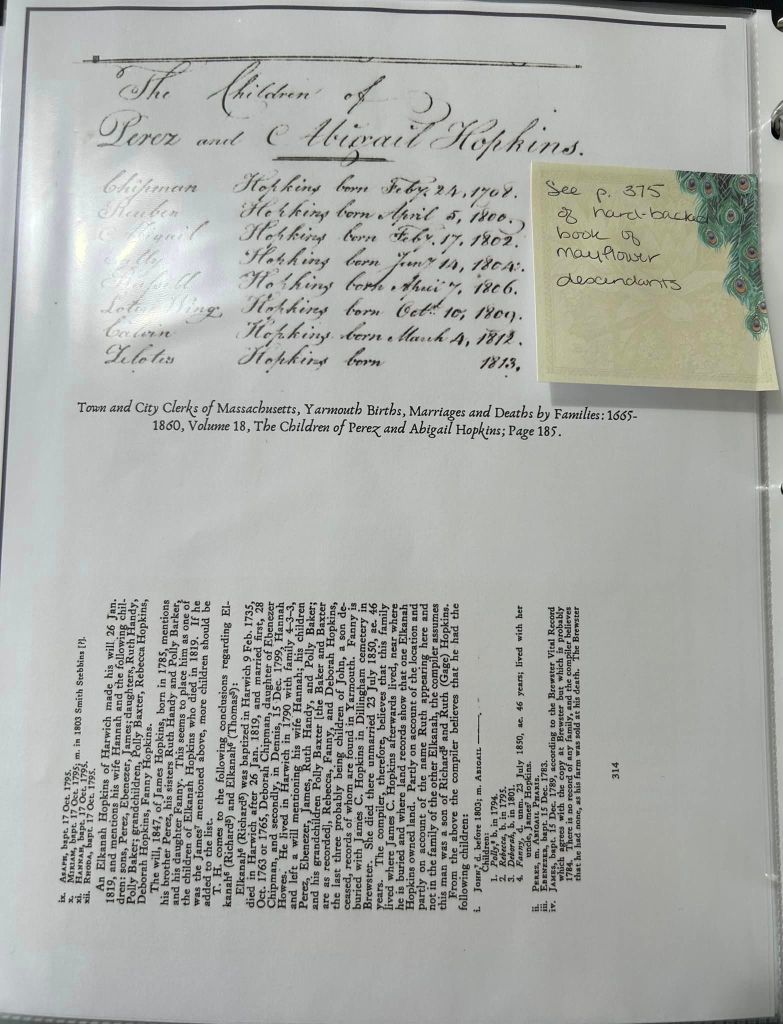 The Children of
Perez and Abigail Hopkins.
Chipman Hopkins born Feby. 24, 1798.
Reuben Hopkins born April 5, 1800.
Abigail Hopkins born Feby. 17, 1802.
Sally Hopkins born Jany 14, 1804.
Hopkins born April 7, 1806.
Wing Hopkins born Octr 10, 1809.
Calvin Hopkins born March 4, 1812.
Hopkins born 1813.
See p. 375
of hard-backed
book of
mayflower
descendants
Town and City Clerks of Massachusetts, Yarmouth Births, Marriages and Deaths by Families: 1665-
1860, Volume 18, The Children of Perez and Abigail Hopkins; Page 185.
ix. ASAPH, bapt. 17 Oct. 1795.
x. MIRIAM, bapt. 17 Oct. 1795; m. in 1803 Smith Stebbins [?].
xi. HANNAH, bapt. 17 Oct. 1795.
xii. RHODA, bapt. 17 Oct. 1795.
An Elkanah Hopkins of Harwich made his will 26 Jan.
1819, and mentions his wife Hannah and the following chil-
dren: sons, Perez, Ebenezer, James; daughters, Ruth Handy,
Polly Baker; grandchildren, Polly Baxter, Rebecca Hopkins,
Deborah Hopkins, Fanny Hopkins.
The will, 1847, of James Hopkins, born in 1785, mentions
his brother Perez, his sisters Ruth Handy and Polly Barker,
and his daughter Fanny. This seems to place him as one of
the children of Elkanah Hopkins who died in 1819. If he
was the James⁷ mentioned above, more children should be
added to the list.
T. H. comes to the following conclusions regarding El-
kanah⁶ (Richard⁵) and Elkanah⁶ (Thomas⁵):
Elkanah⁶ (Richard⁵) was baptized in Harwich 9 Feb. 1735,
died in Harwich after 26 Jan. 1819, and married first, 28
Oct. 1763 or 1765, Deborah Chipman, daughter of Ebenezer
Chipman, and secondly, in Dennis, 15 Dec. 1799, Hannah
Howes. He lived in Harwich in 1790 with family 4–3–3,
and left a will mentioning his wife Hannah; his children
Perez, Ebenezer, James, Ruth Handy, and Polly Baker;
and his grandchildren Polly Baxter [the Baker and Baxter
are as recorded], Rebecca, Fanny, and Deborah Hopkins,
the last three probably being children of John, a son de-
ceased, records of whom are found in Yarmouth. Fanny is
buried with James C. Hopkins in Dillingham cemetery in
Brewster. She died there unmarried 23 July 1850, ae. 46
years. The compiler, therefore, believes that this family
lived where James C. Hopkins afterwards lived, near where
he is buried and where land records show that one Elkanah
Hopkins owned land. Partly on account of the location and
partly on account of the name Ruth appearing here and
not in the family of the other Elkanah, the compiler assumes
this man was a son of Richard⁵ and Ruth (Gage) Hopkins.
From the above the compiler believes that he had the
following children:
i. JOHN,⁷ d. before 1803; m. ABIGAIL ———.
Children:
1. Polly,⁸ b. in 1794.
2. Rebecca, b. in 1795.
3. Deborah, b. in 1801.
4. Fanny, d. unm. 23 July 1850, ae. 46 years; lived with her
uncle, James⁷ Hopkins.
ii. PEREZ, m. ABIGAIL PERRY.
iii. EBENEZER, bapt. 15 Dec. 1783.
iv. JAMES, bapt. 15 Dec. 1789, according to the Brewster Vital Record
which agrees with the copy at Brewster but which is probably
1784. There is no record of any family, and the compiler believes
that he had none, as his farm was sold at his death. The Brewster
314